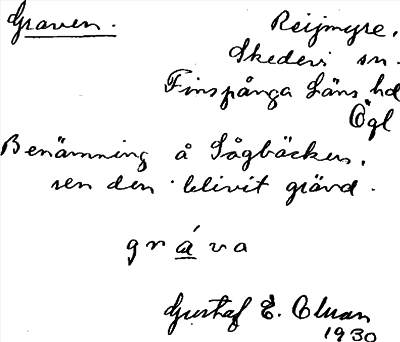 Graven.
Reijmyre,
Skedevi sn.
Finspånga Läns hd
Ögl
Benämning å Sågbäcken,
sen den blivit grävd.
gráva
Gustaf E.
1930